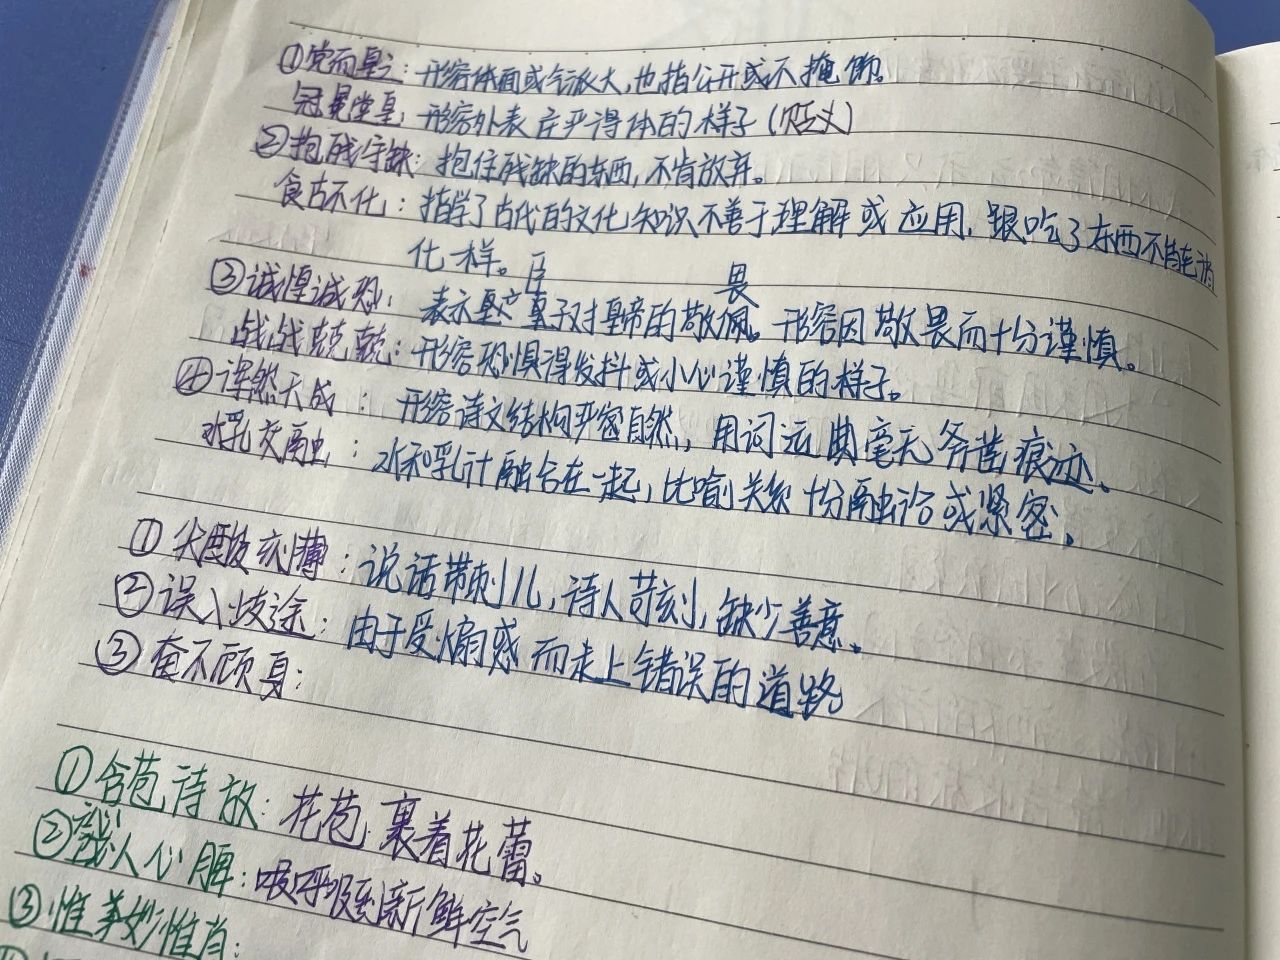 ①堂而皇之：形容体面或气派大，也指公开或不掩饰。
冠冕堂皇：形容外表庄严得体的样子（贬义）
②抱残守缺：抱住残缺的东西，不肯放弃。
食古不化：指学了古代的文化知识不善于理解或应用，跟吃了东西不能消
化样。 臣 畏
③诚惶诚恐：表示 皇帝的敬佩。形容因敬畏而十分谨慎。
战战兢兢：形容恐惧得发抖或小心谨慎的样子。
④浑然天成：形容诗文结构严密自然，用词运典毫无斧凿痕迹。
水乳交融：水和乳汁融合在一起，比喻关系十分融洽或紧密。
①尖酸刻薄：说话带刺儿，待人苛刻，缺少善意。
②误入歧途：由于受煽惑而走上错误的道路
③奋不顾身：
①含苞待放：花苞裹着花蕾。
②人心脾：呼吸到新鲜空气
③惟美妙惟肖：